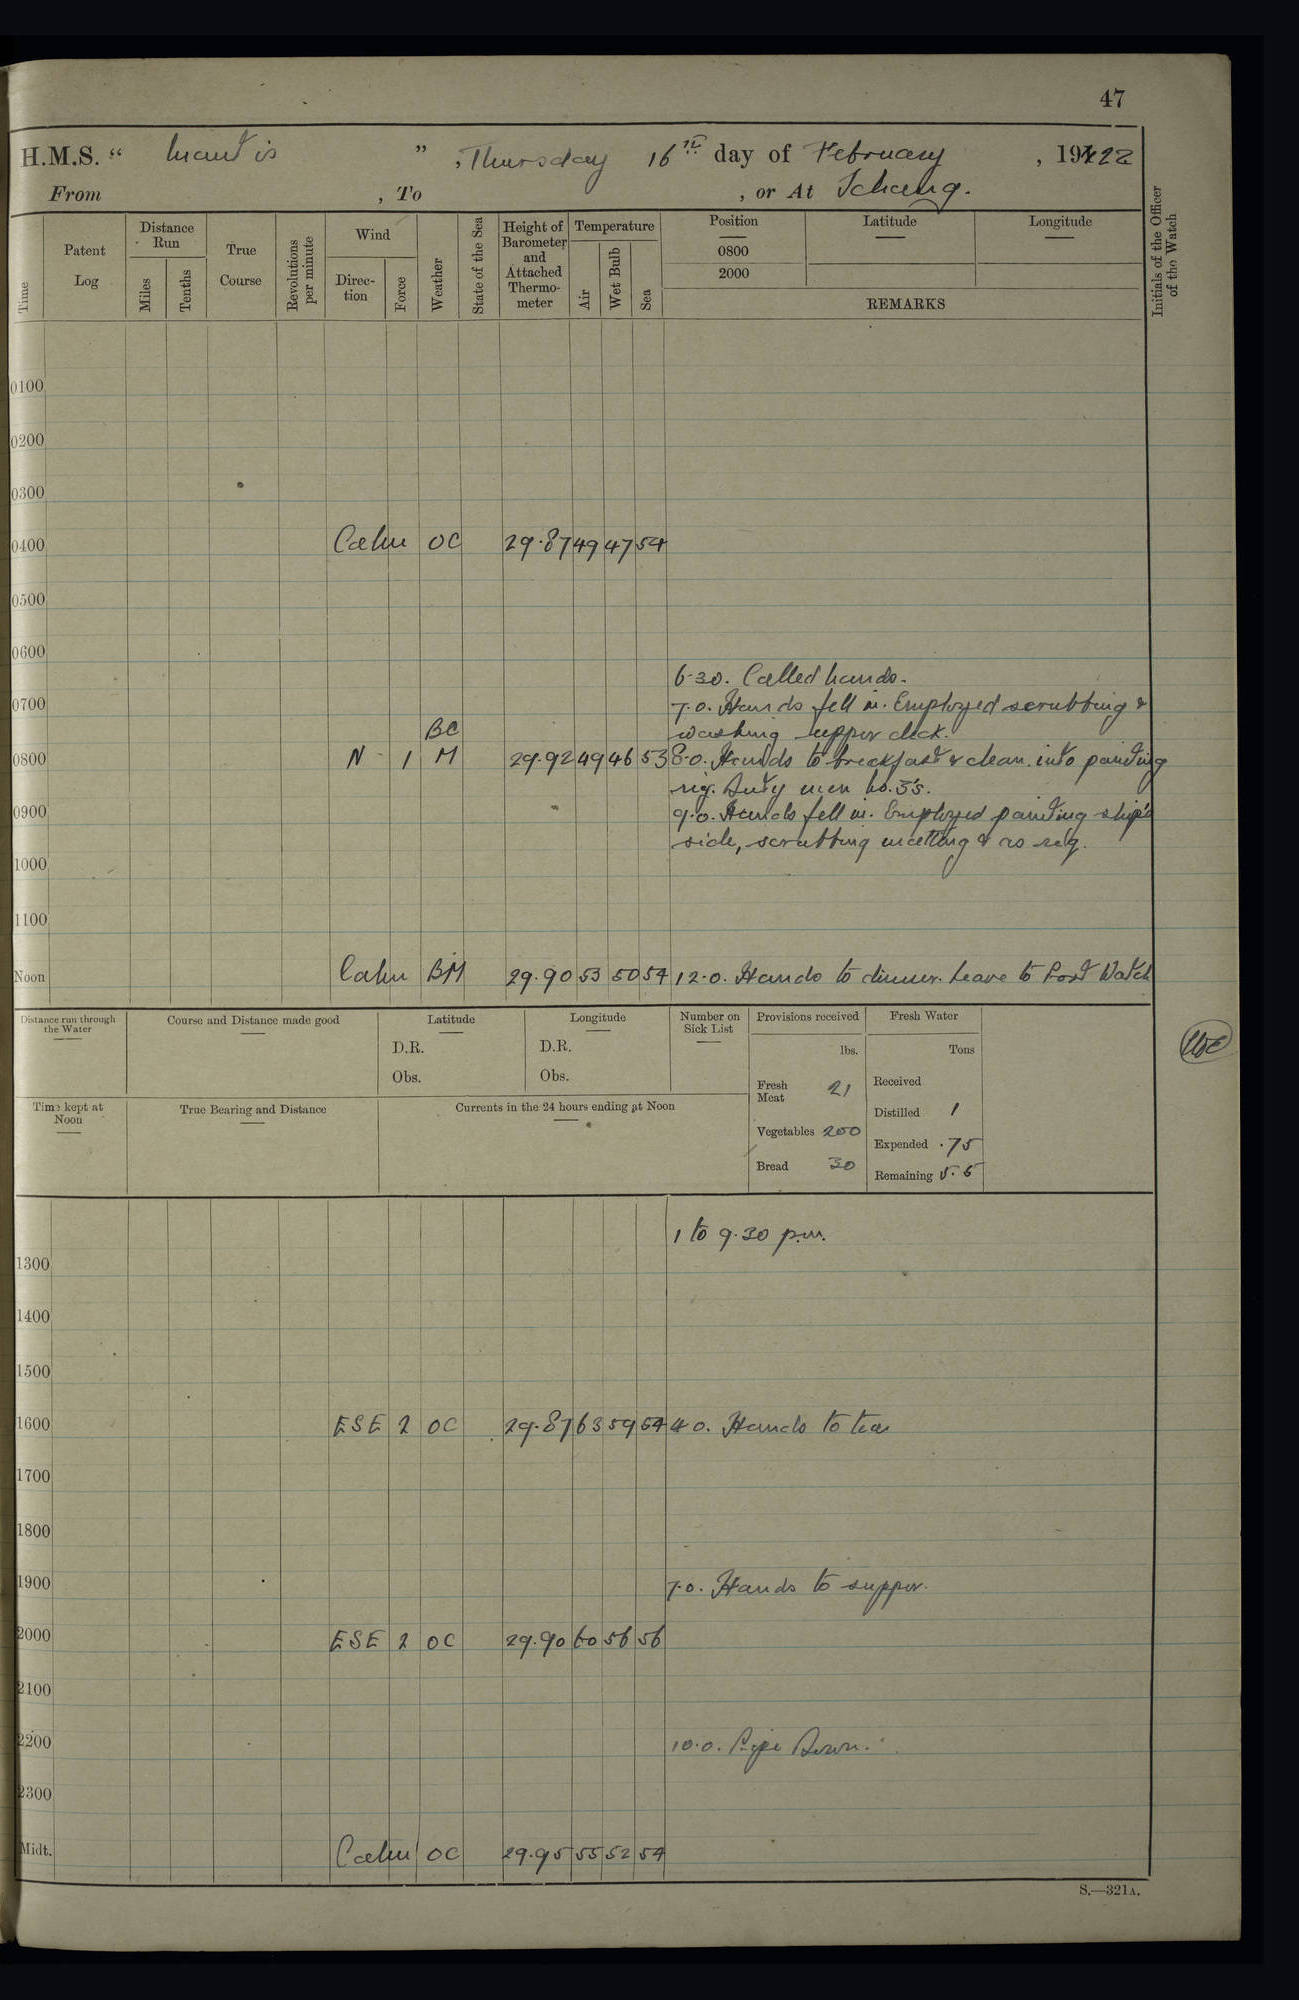 47
H.M.S. “ Mantis ” , Thursday 16th day of February , 1922
From , To , or At Ichang.
Time
Patent Log
Distance Run
Miles
Tenths
True Course
Revolutions per minute
Wind
Direc-tion
Force
Weather
State of the Sea
Height of Barometer and Attached Thermo-meter
Temperature
Air
Wet Bulb
Sea
Position
0800
2000
Latitude
Longitude
REMARKS
Initials of the Officer of the Watch
0100
0200
0300
0400 Calm OC 29.87 49 47 54
0500
0600
6.30. Called hands.
0700 7.0. Hands fell in. Employed scrubbing &
BC washing upper deck.
0800 N 1 M 29.92 49 46 53 8.0. Hands to breakfast & clean into painting
rig. Duty men No. 3's.
0900 9.0. Hands fell in. Employed painting ship's
side, scrubbing matting & as req.
1000
1100
Noon Calm BM 29.90 53 50 54 12.0. Hands to dinner. Leave to Port Watch
Distance run through the Water
Course and Distance made good
Latitude
D.R.
Obs.
Longitude
D.R.
Obs.
Number on Sick List
Provisions received
lbs.
Fresh Meat 21
Vegetables 200
Bread 30
Fresh Water
Tons
Received
Distilled 1
Expended .75
Remaining 5.5
Time kept at Noon
True Bearing and Distance
Currents in the 24 hours ending at Noon
1 to 9.30 p.m.
1300
1400
1500
1600 ESE 2 OC 29.87 63 59 54 4.0. Hands to tea
1700
1800
1900 7.0. Hands to supper.
2000 ESE 2 OC 29.90 60 56 56
2100
2200 10.0. Pipe Down.
2300
Midt. Calm OC 29.95 55 52 54
S.—321A.